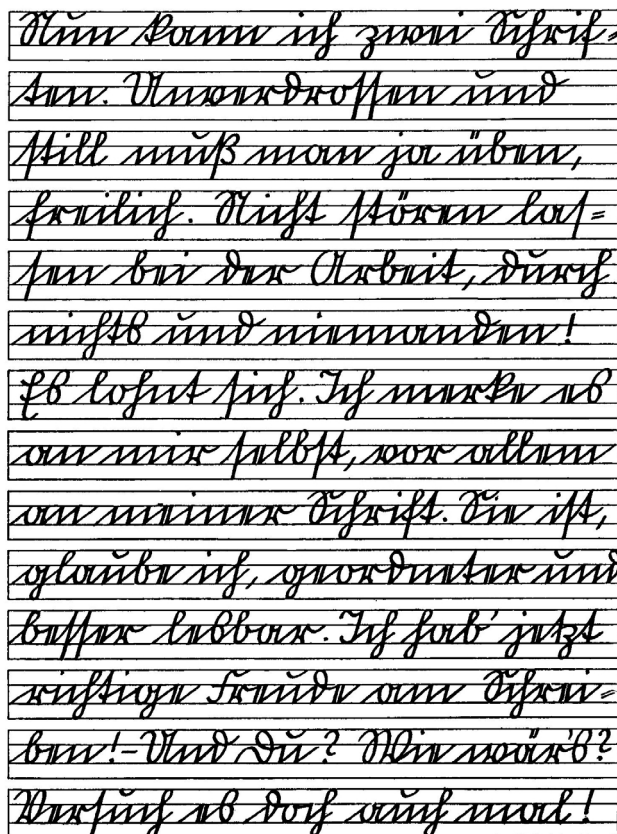 Nun kann ich zwei Schrif=
ten. Unverdrossen und
still muß man ja üben,
freilich. Nicht stören las=
sen bei der Arbeit, durch
nichts und niemanden!
Es lohnt sich. Ich merke es
an mir selbst, vor allem
an meiner Schrift. Sie ist,
glaube ich, geordneter und
besser lesbar. Ich hab' jetzt
richtige Freude am Schrei=
ben!–Und Du? Wie wär's?
Versuch es doch auch mal!